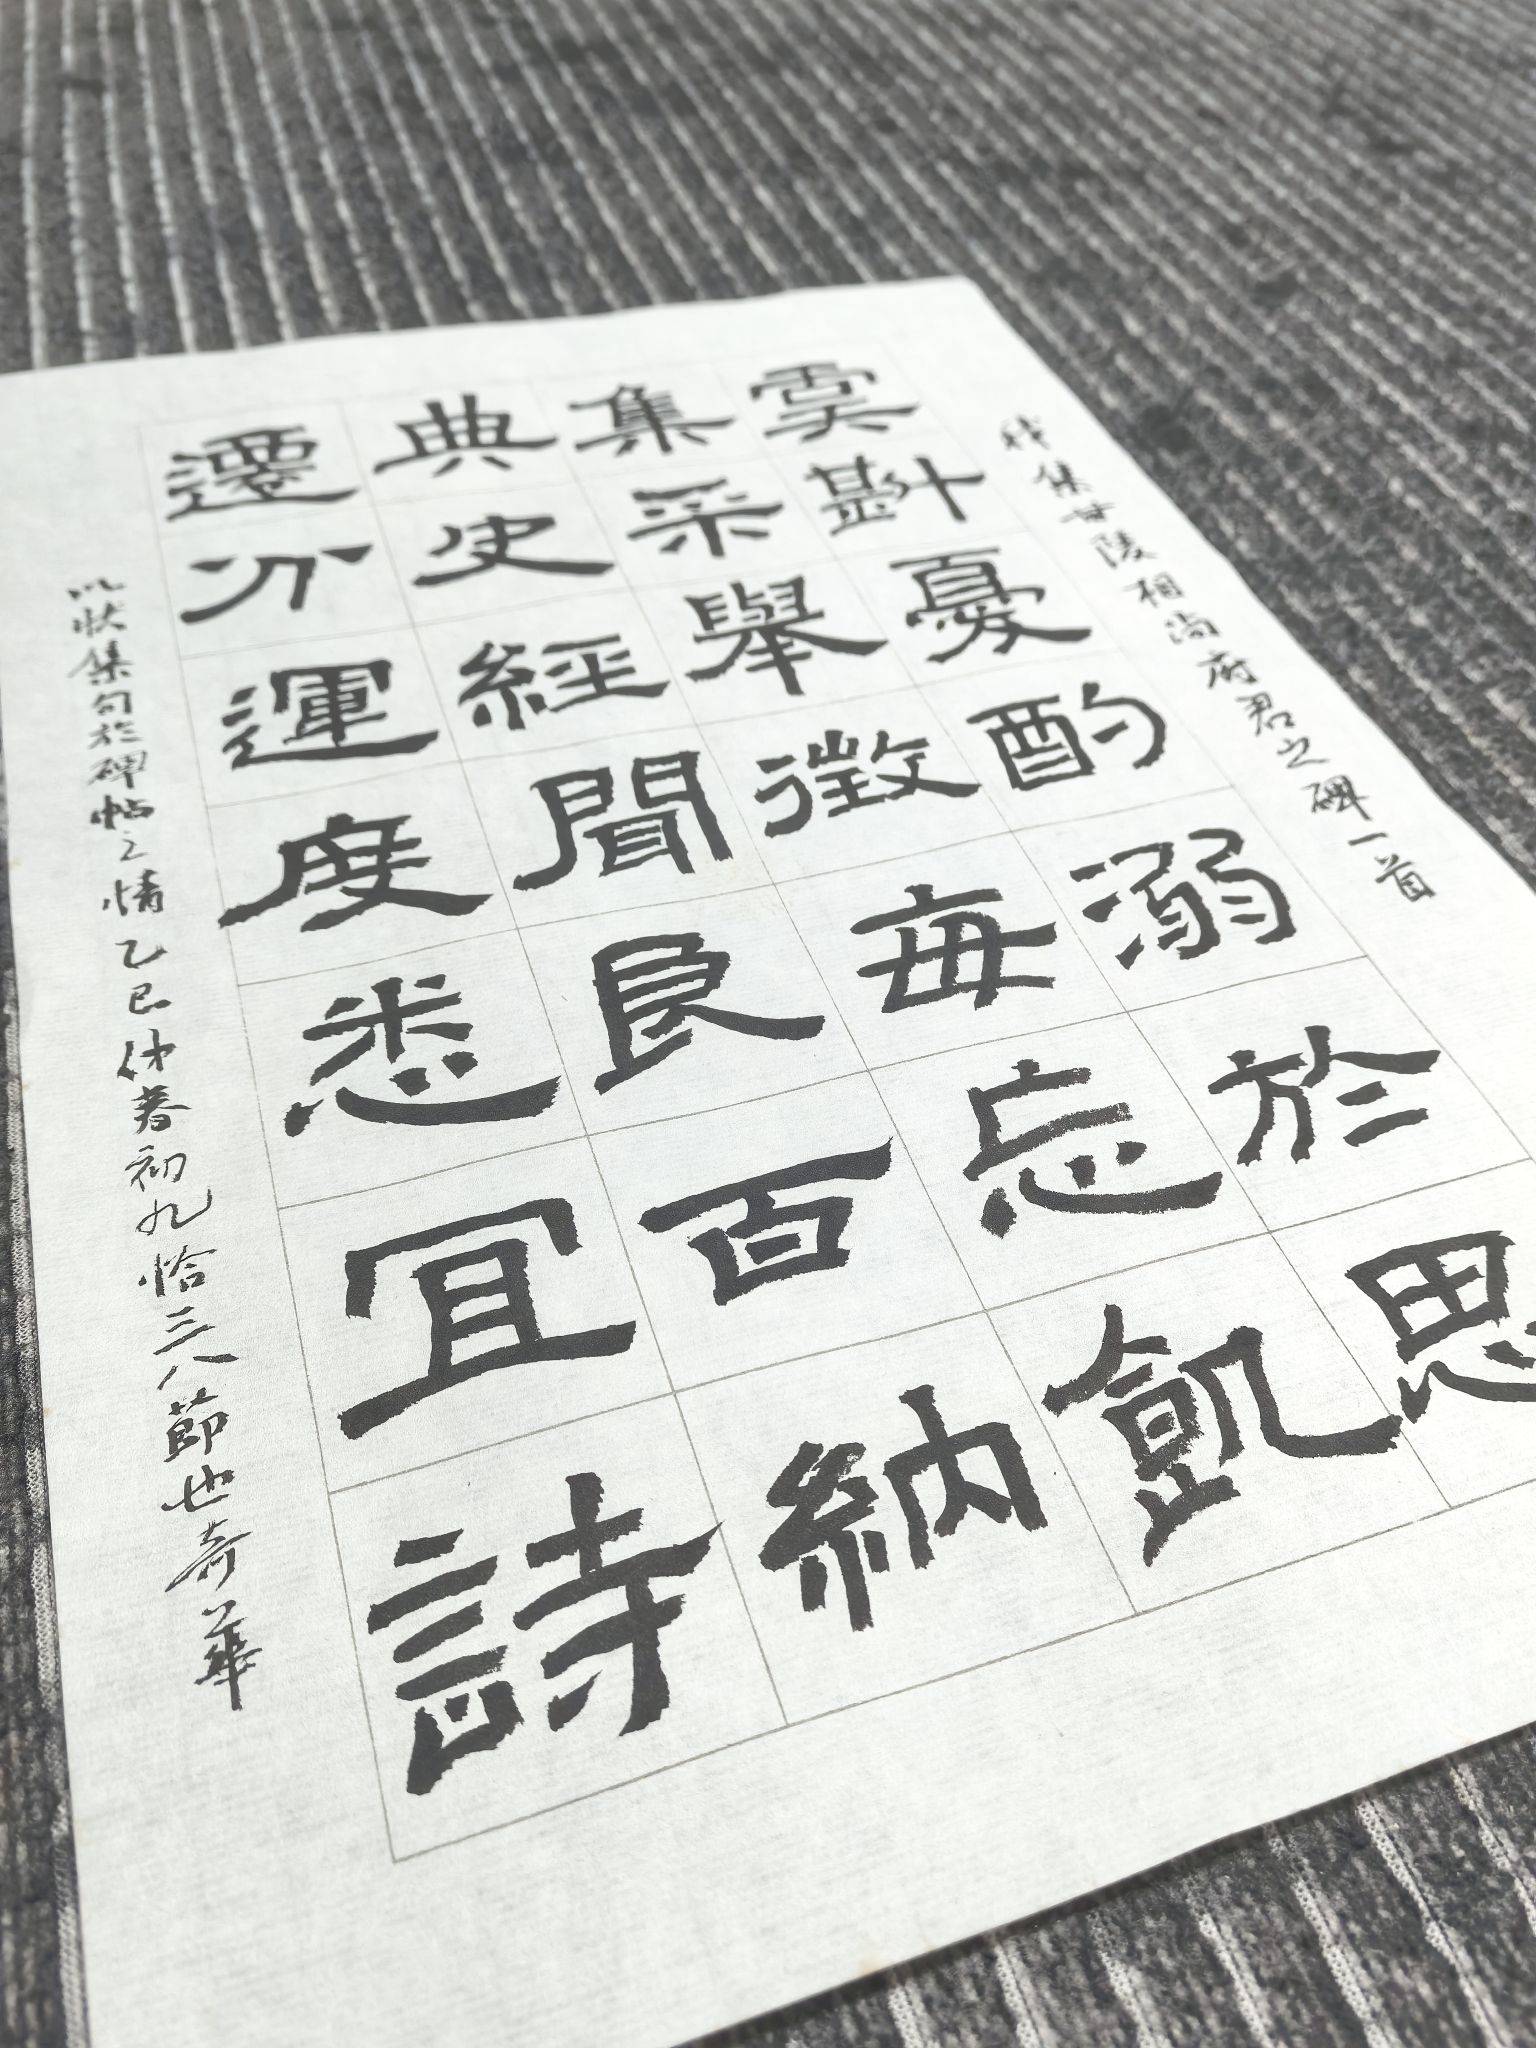 我集甘陵相尚府君之碑一首
斟憂酌溺於思
集采舉徵每忘飢
典史經聞良百納
遷介運度悉宜詩
以狀集句於碑帖之情乙巳仲春初九恰三八節也奇華